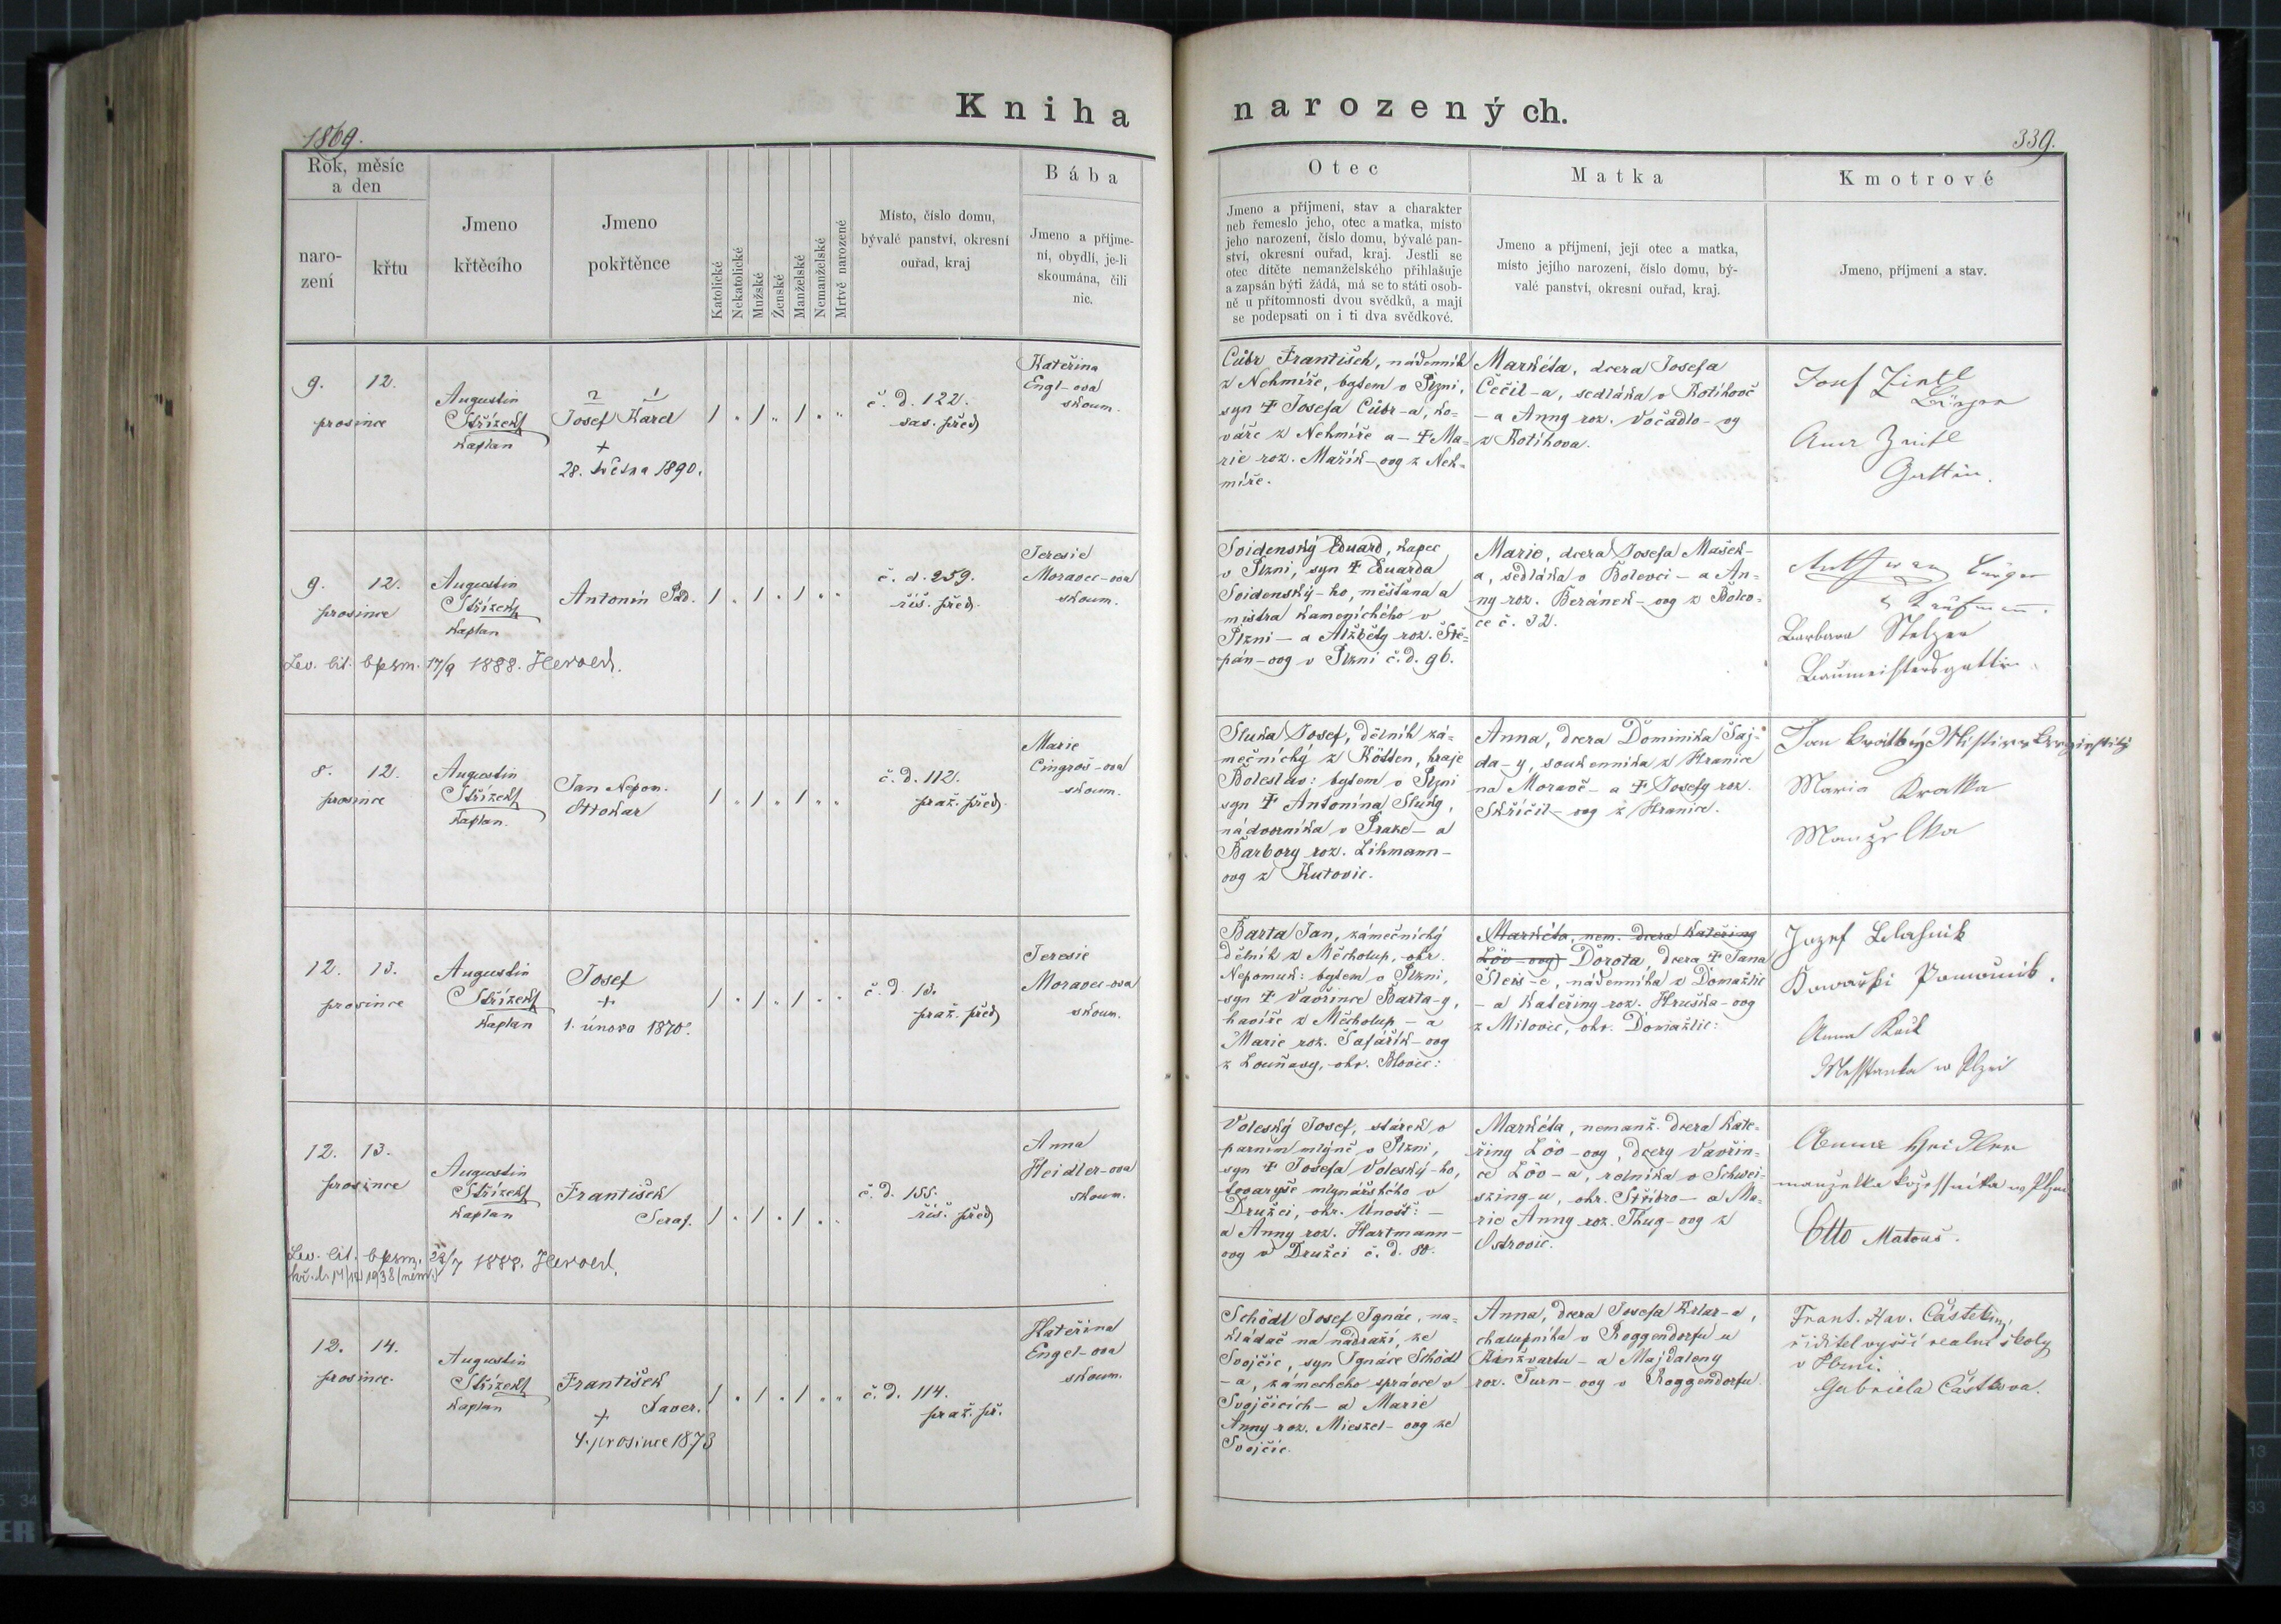 Kniha narozených.
1869.
339.
Rok, měsíc
a den
naro-
zení
křtu
Jmeno
křtěcího
Jmeno
pokřtěnce
Katolické
Nekatolické
Mužské
Ženské
Manželské
Nemanželské
Mrtvě narozené
Místo, číslo domu,
bývalé panství, okresní
ouřad, kraj
Bába
Jmeno a příjme-
ní, obydlí, je-li
skoumána, čili
nic.
Otec
Jmeno a příjmení, stav a charakter
neb řemeslo jeho, otec a matka, místo
jeho narození, číslo domu, bývalé pan-
ství, okresní ouřad, kraj. Jestli se
otec dítěte nemanželského přihlašuje
a zapsán býti žádá, má se to státi osob-
ně u přítomnosti dvou svědků, a mají
se podepsati on i ti dva svědkové.
Matka
Jmeno a příjmení, její otec a matka,
místo jejího narození, číslo domu, bý-
valé panství, okresní ouřad, kraj.
Kmotrové
Jmeno, příjmení a stav.
9. 12.
prosince
Augustin
Střízek
kaplan
2 1
Josef Karel
+
28. května 1890.
č. d. 122.
sas. před
Kateřina
Engl-ova
skoum.
Cúbr František, nádenník
z Nekmíře, bytem v Plzni,
syn † Josefa Cúbr-a, ko-
váře z Nekmíře a - † Ma-
rie roz. Mařík-ovy z Nek-
míře.
Markéta, dcera Josefa
Čečil-a, sedláka v Kotíkově
- a Anny roz. Vočadlo-vy
z Kotíkova.
Josef
Bürger
Gattin.
9. 12.
prosince
Augustin
Střízek
kaplan
Antonín Pad.
Lev. lit. bpsm. 17/9 1888. Herold.
č. d. 259.
říš. před.
Teresie
Moravec-ova
skoum.
Svidenský Eduard, kupec
v Plzni, syn † Eduarda
Svidenský-ho, měšťana a
mistra kamenického v
Plzni - a Alžběty roz. Ště-
pán-ovy v Plzni č. d. 96.
Marie, dcera Josefa Mašek-
a, sedláka v Bolevci - a An-
ny roz. Beránek-ovy z Bolev-
ce č. 32.
Bürger
Kaufmann.
Barbara Stelzer
Baumeistersgattin.
8. 12.
prosince
Augustin
Střízek
kaplan.
Jan Nepom.
Ottokar
č. d. 112.
praž. před.
Marie
Cingroš-ova
skoum.
Sluka Josef, dělník zá-
mečnický z Kötten, kraje
Boleslav: bytem v Plzni
syn † Antonína Sluky,
nádvorníka v Praze - a
Barbory roz. Lihmann-
ovy z Kutovic.
Anna, dcera Dominika Šaj-
da-y, soukenníka z Hranice
na Moravě - a † Josefy roz.
Skřičil-ovy z Hranice.
Jan Kratký
Maria Kratka
Manželka
12. 13.
prosince
Augustin
Střízek
kaplan
Josef
+
1. února 1870.
č. d. 13.
praž. před
Teresie
Moravec-ova
skoum.
Barta Jan, zámečnický
dělník z Měcholup, okr.
Nepomuk: bytem v Plzni,
syn † Vavřince Barta-y,
havíře z Měcholup - a
Marie roz. Šafařík-ovy
z Louňavy, okr. Blovic:
Markéta, nem. dcera Kateřiny
Löv-ovy Dorota, dcera † Jana
Šlers-e, nádenníka z Domažlic
- a Kateřiny roz. Hruška-ovy
z Milavec, okr. Domažlic:
Jozef
Kowařski Pomocnik.
Anna
w Plzni
12. 13.
prosince
Augustin
Střízek
kaplan
František
Seraf.
Lev. lit. bpsm. 23/7 1888. Herold.
kř. l. 17/12 1938 (něm.)
č. d. 155.
říš. před
Anna
Heidler-ova
skoum.
Voleský Josef, stárek v
parním mlýně v Plzni,
syn † Josefa Voleský-ho,
tovaryše mlynářského v
Družci, okr. Unošť: -
a Anny roz. Hartmann-
ovy v Družci č. d. 80.
Markéta, nemanž. dcera Kate-
řiny Löv-ovy, dcery Vavřin-
ce Löv-a, rolníka v Schwei-
szing-u, okr. Stříbro - a Ma-
rie Anny roz. Thug-ovy z
Ostrovic.
Anna Heidler
manzelka w Plzni
Otto Matouš.
12. 14.
prosince.
Augustin
Střízek
kaplan
František
Xaver.
+
4. prosince 1873
č. d. 114.
praž. př.
Kateřina
Engel-ova
skoum.
Schödl Josef Ignác, na-
kládač na nádraží, ze
Svojšic, syn Ignáce Schödl
-a, zámeckého správce v
Svojšicích - a Marie
Anny roz. Mieszel-ovy ze
Svojšic.
Anna, dcera Josefa Krlar-a,
chalupníka v Roggendorfu u
Kinžvartu - a Majdaleny
roz. Turn-ovy v Roggendorfu
Frant. Xav. Částek,
řiditel vyšší realní školy
v Plzni.
Gabriela Částkova.